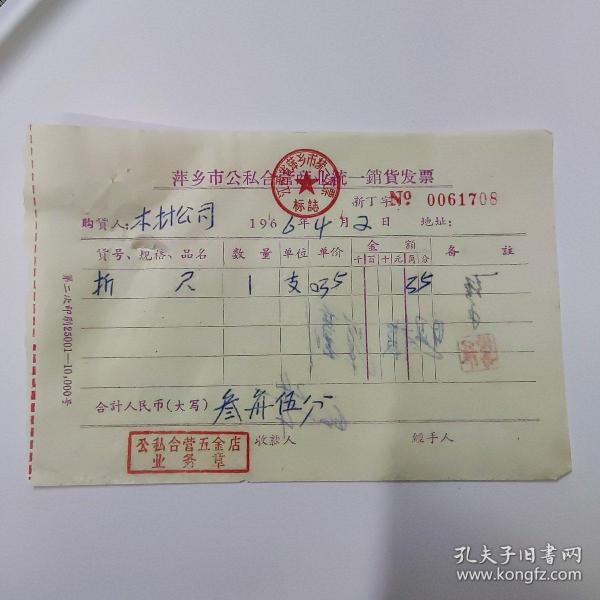 萍乡市公私合营商业统一銷貨发票
标誌
新丁字 № 0061708
购貨人:木材公司 1966年4月2日 地址:
貨号、规格、品名 数量 单位 单价 金額 备註
千百十元角分
折尺 1 支 035 35
合計人民币(大写) 叁角伍分
收款人 經手人
公私合营五金店
业务章
第二次印刷25001—10,000号
孔夫子旧书网
www.kongfz.com